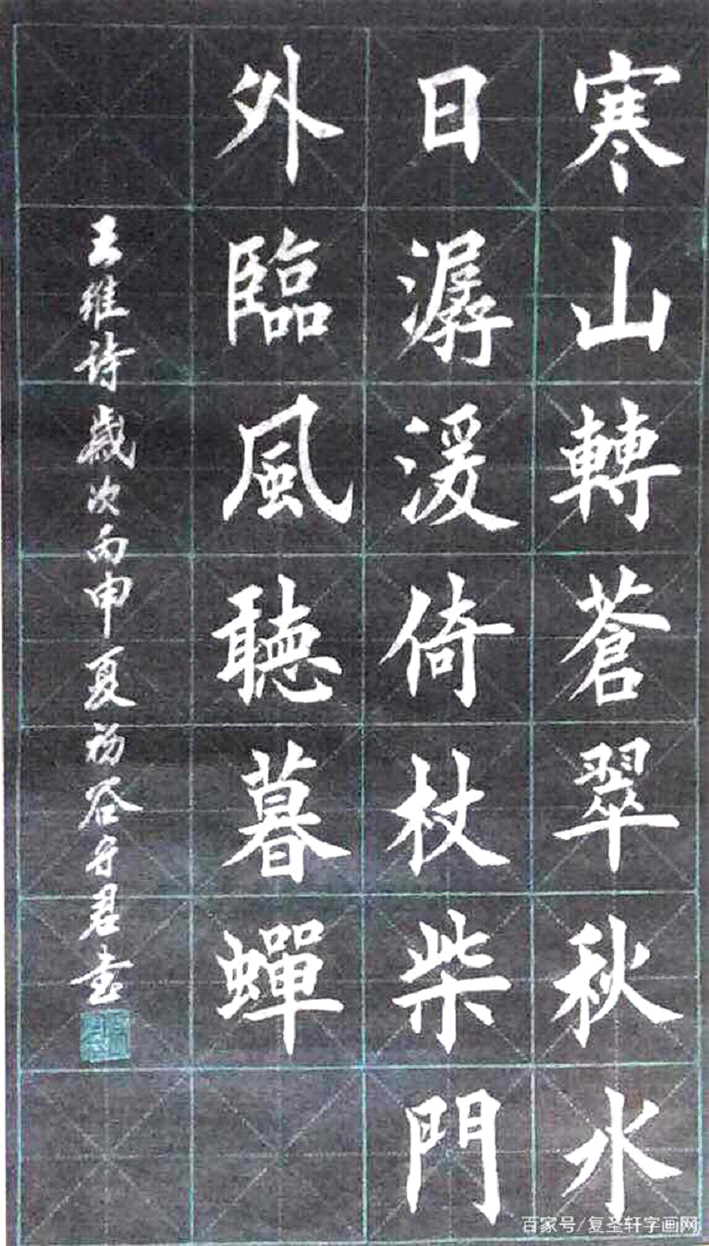 寒山轉蒼翠秋水
日潺湲倚杖柴門
外臨風聽暮蟬
王維诗歲次丙申夏君书
百家号/复圣轩字画网